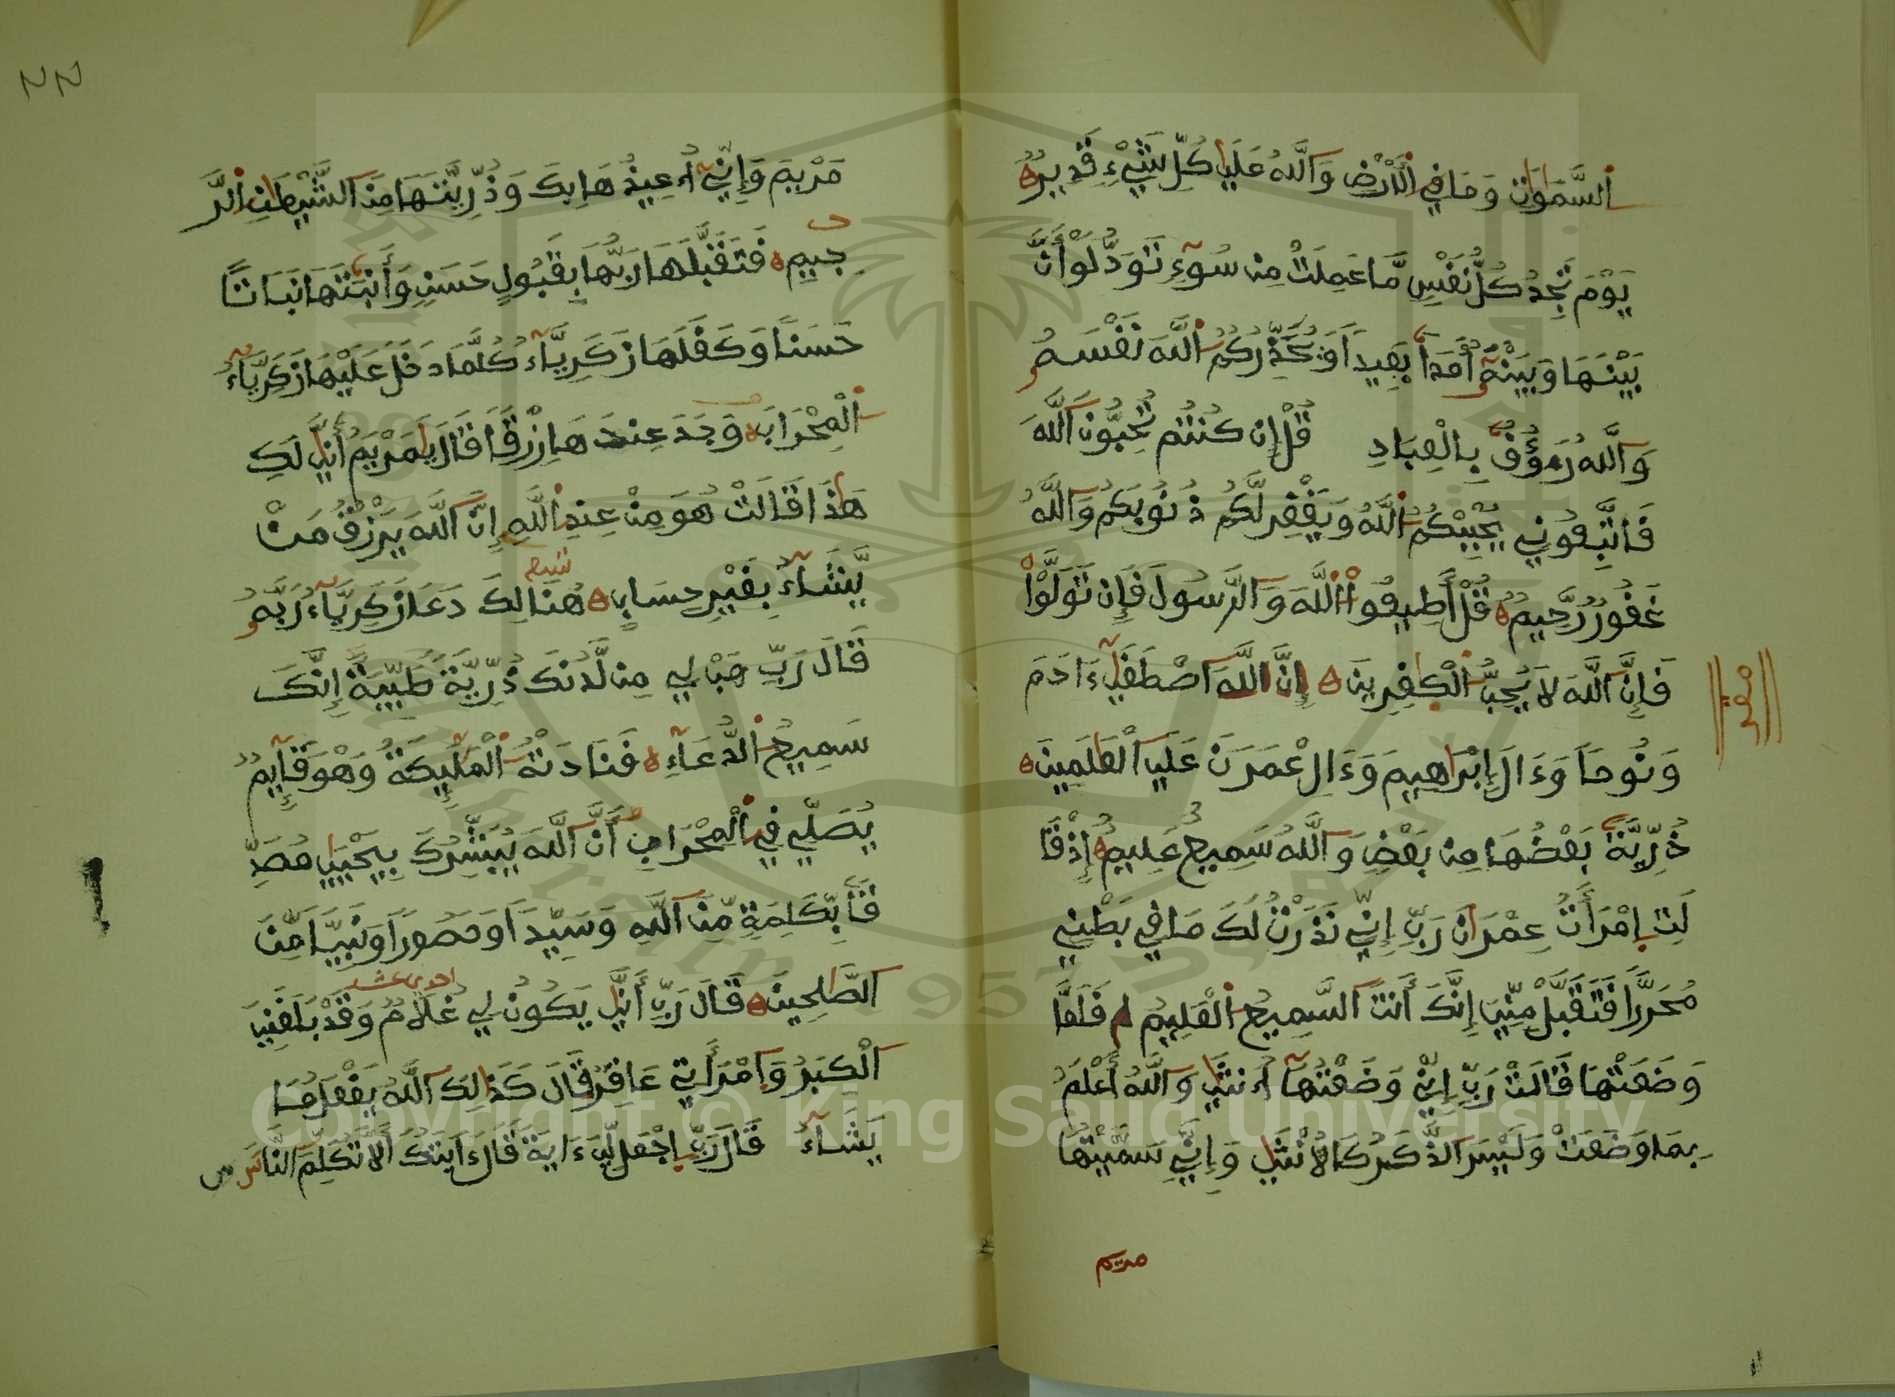 السَّمَٰوَٰتِ وَمَا فِي الْأَرْضِ وَاللَّهُ عَلَىٰ كُلِّ شَيْءٍ قَدِيرٌ
يَوْمَ تَجِدُ كُلُّ نَفْسٍ مَّا عَمِلَتْ مِن سُوءٍ تَوَدُّ لَوْ أَنَّ
بَيْنَهَا وَبَيْنَهُ أَمَدًا بَعِيدًا وَيُحَذِّرُكُمُ اللَّهُ نَفْسَهُ
وَاللَّهُ رَءُوفٌ بِالْعِبَادِ قُلْ إِن كُنتُمْ تُحِبُّونَ اللَّهَ
فَاتَّبِعُونِي يُحْبِبْكُمُ اللَّهُ وَيَغْفِرْ لَكُمْ ذُنُوبَكُمْ وَاللَّهُ
غَفُورٌ رَّحِيمٌ قُلْ أَطِيعُوا اللَّهَ وَالرَّسُولَ فَإِن تَوَلَّوْا
فَإِنَّ اللَّهَ لَا يُحِبُّ الْكَٰفِرِينَ إِنَّ اللَّهَ اصْطَفَىٰ ءَادَمَ
وَنُوحًا وَءَالَ إِبْرَاهِيمَ وَءَالَ عِمْرَٰنَ عَلَى الْعَٰلَمِينَ
ذُرِّيَّةً بَعْضُهَا مِن بَعْضٍ وَاللَّهُ سَمِيعٌ عَلِيمٌ إِذْ قَا
لَتِ امْرَأَتُ عِمْرَانَ رَبِّ إِنِّي نَذَرْتُ لَكَ مَا فِي بَطْنِي
مُحَرَّرًا فَتَقَبَّلْ مِنِّي إِنَّكَ أَنتَ السَّمِيعُ الْعَلِيمُ فَلَمَّا
وَضَعَتْهَا قَالَتْ رَبِّ إِنِّي وَضَعْتُهَا أُنثَىٰ وَاللَّهُ أَعْلَمُ
بِمَا وَضَعَتْ وَلَيْسَ الذَّكَرُ كَالْأُنثَىٰ وَإِنِّي سَمَّيْتُهَا
مريم
مَرْيَمَ وَإِنِّي أُعِيذُهَا بِكَ وَذُرِّيَّتَهَا مِنَ الشَّيْطَٰنِ الرَّ
جِيمِ فَتَقَبَّلَهَا رَبُّهَا بِقَبُولٍ حَسَنٍ وَأَنبَتَهَا نَبَاتًا
حَسَنًا وَكَفَلَهَا زَكَرِيَّاءُ كُلَّمَا دَخَلَ عَلَيْهَا زَكَرِيَّاءُ
الْمِحْرَابَ وَجَدَ عِندَهَا رِزْقًا قَالَ يَٰمَرْيَمُ أَنَّىٰ لَكِ
هَٰذَا قَالَتْ هُوَ مِنْ عِندِ اللَّهِ إِنَّ اللَّهَ يَرْزُقُ مَنْ
يَّشَاءُ بِغَيْرِ حِسَابٍ هُنَالِكَ دَعَا زَكَرِيَّاءُ رَبَّهُ
قَالَ رَبِّ هَبْ لِي مِن لَّدُنكَ ذُرِّيَّةً طَيِّبَةً إِنَّكَ
سَمِيعُ الدُّعَاءِ فَنَادَتْهُ الْمَلَٰئِكَةُ وَهْوَ قَائِمٌ
يُصَلِّي فِي الْمِحْرَابِ أَنَّ اللَّهَ يُبَشِّرُكَ بِيَحْيَىٰ مُصَدِّ
قًا بِكَلِمَةٍ مِّنَ اللَّهِ وَسَيِّدًا وَحَصُورًا وَنَبِيًّا مِّنَ
الصَّٰلِحِينَ قَالَ رَبِّ أَنَّىٰ يَكُونُ لِي غُلَامٌ وَقَدْ بَلَغَنِيَ
الْكِبَرُ وَامْرَأَتِي عَاقِرٌ قَالَ كَذَٰلِكَ اللَّهُ يَفْعَلُ مَا
يَشَاءُ قَالَ رَبِّ اجْعَل لِّي ءَايَةً قَالَ ءَايَتُكَ أَلَّا تُكَلِّمَ النَّاسَ
Copyright © King Saud University
1957